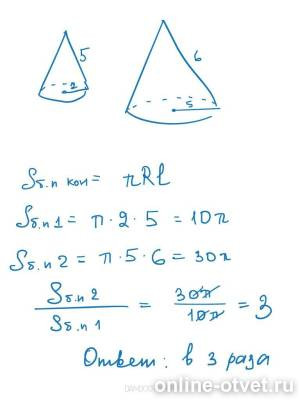 5
2
6
5
Sб.п кон = πRl
Sб.п1 = π·2·5 = 10π
Sб.п2 = π·5·6 = 30π
Sб.п2 / Sб.п1 = 30π / 10π = 3
Ответ: в 3 раза
online-otvet.ru